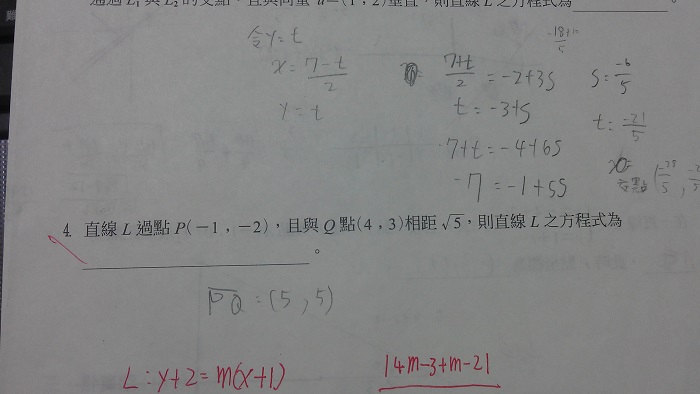 通過 L₁ 與 L₂ 的交點，且與向量 u=(1，2)垂直，則直線 L 之方程式為＿＿＿＿＿。
令y=t
x=7-t/2
y=t
7+t/2=-2+3s
t=-3+s
7+t=-4+6s
-7=-1+5s
-18+10/5
s=-6/5
t=-21/5
交點
4. 直線 L 過點 P(−1，−2)，且與 Q 點(4，3)相距 √5，則直線 L 之方程式為
＿＿＿＿＿＿＿＿＿＿。
PQ=(5,5)
L:y+2=m(x+1)
|4m-3+m-2|